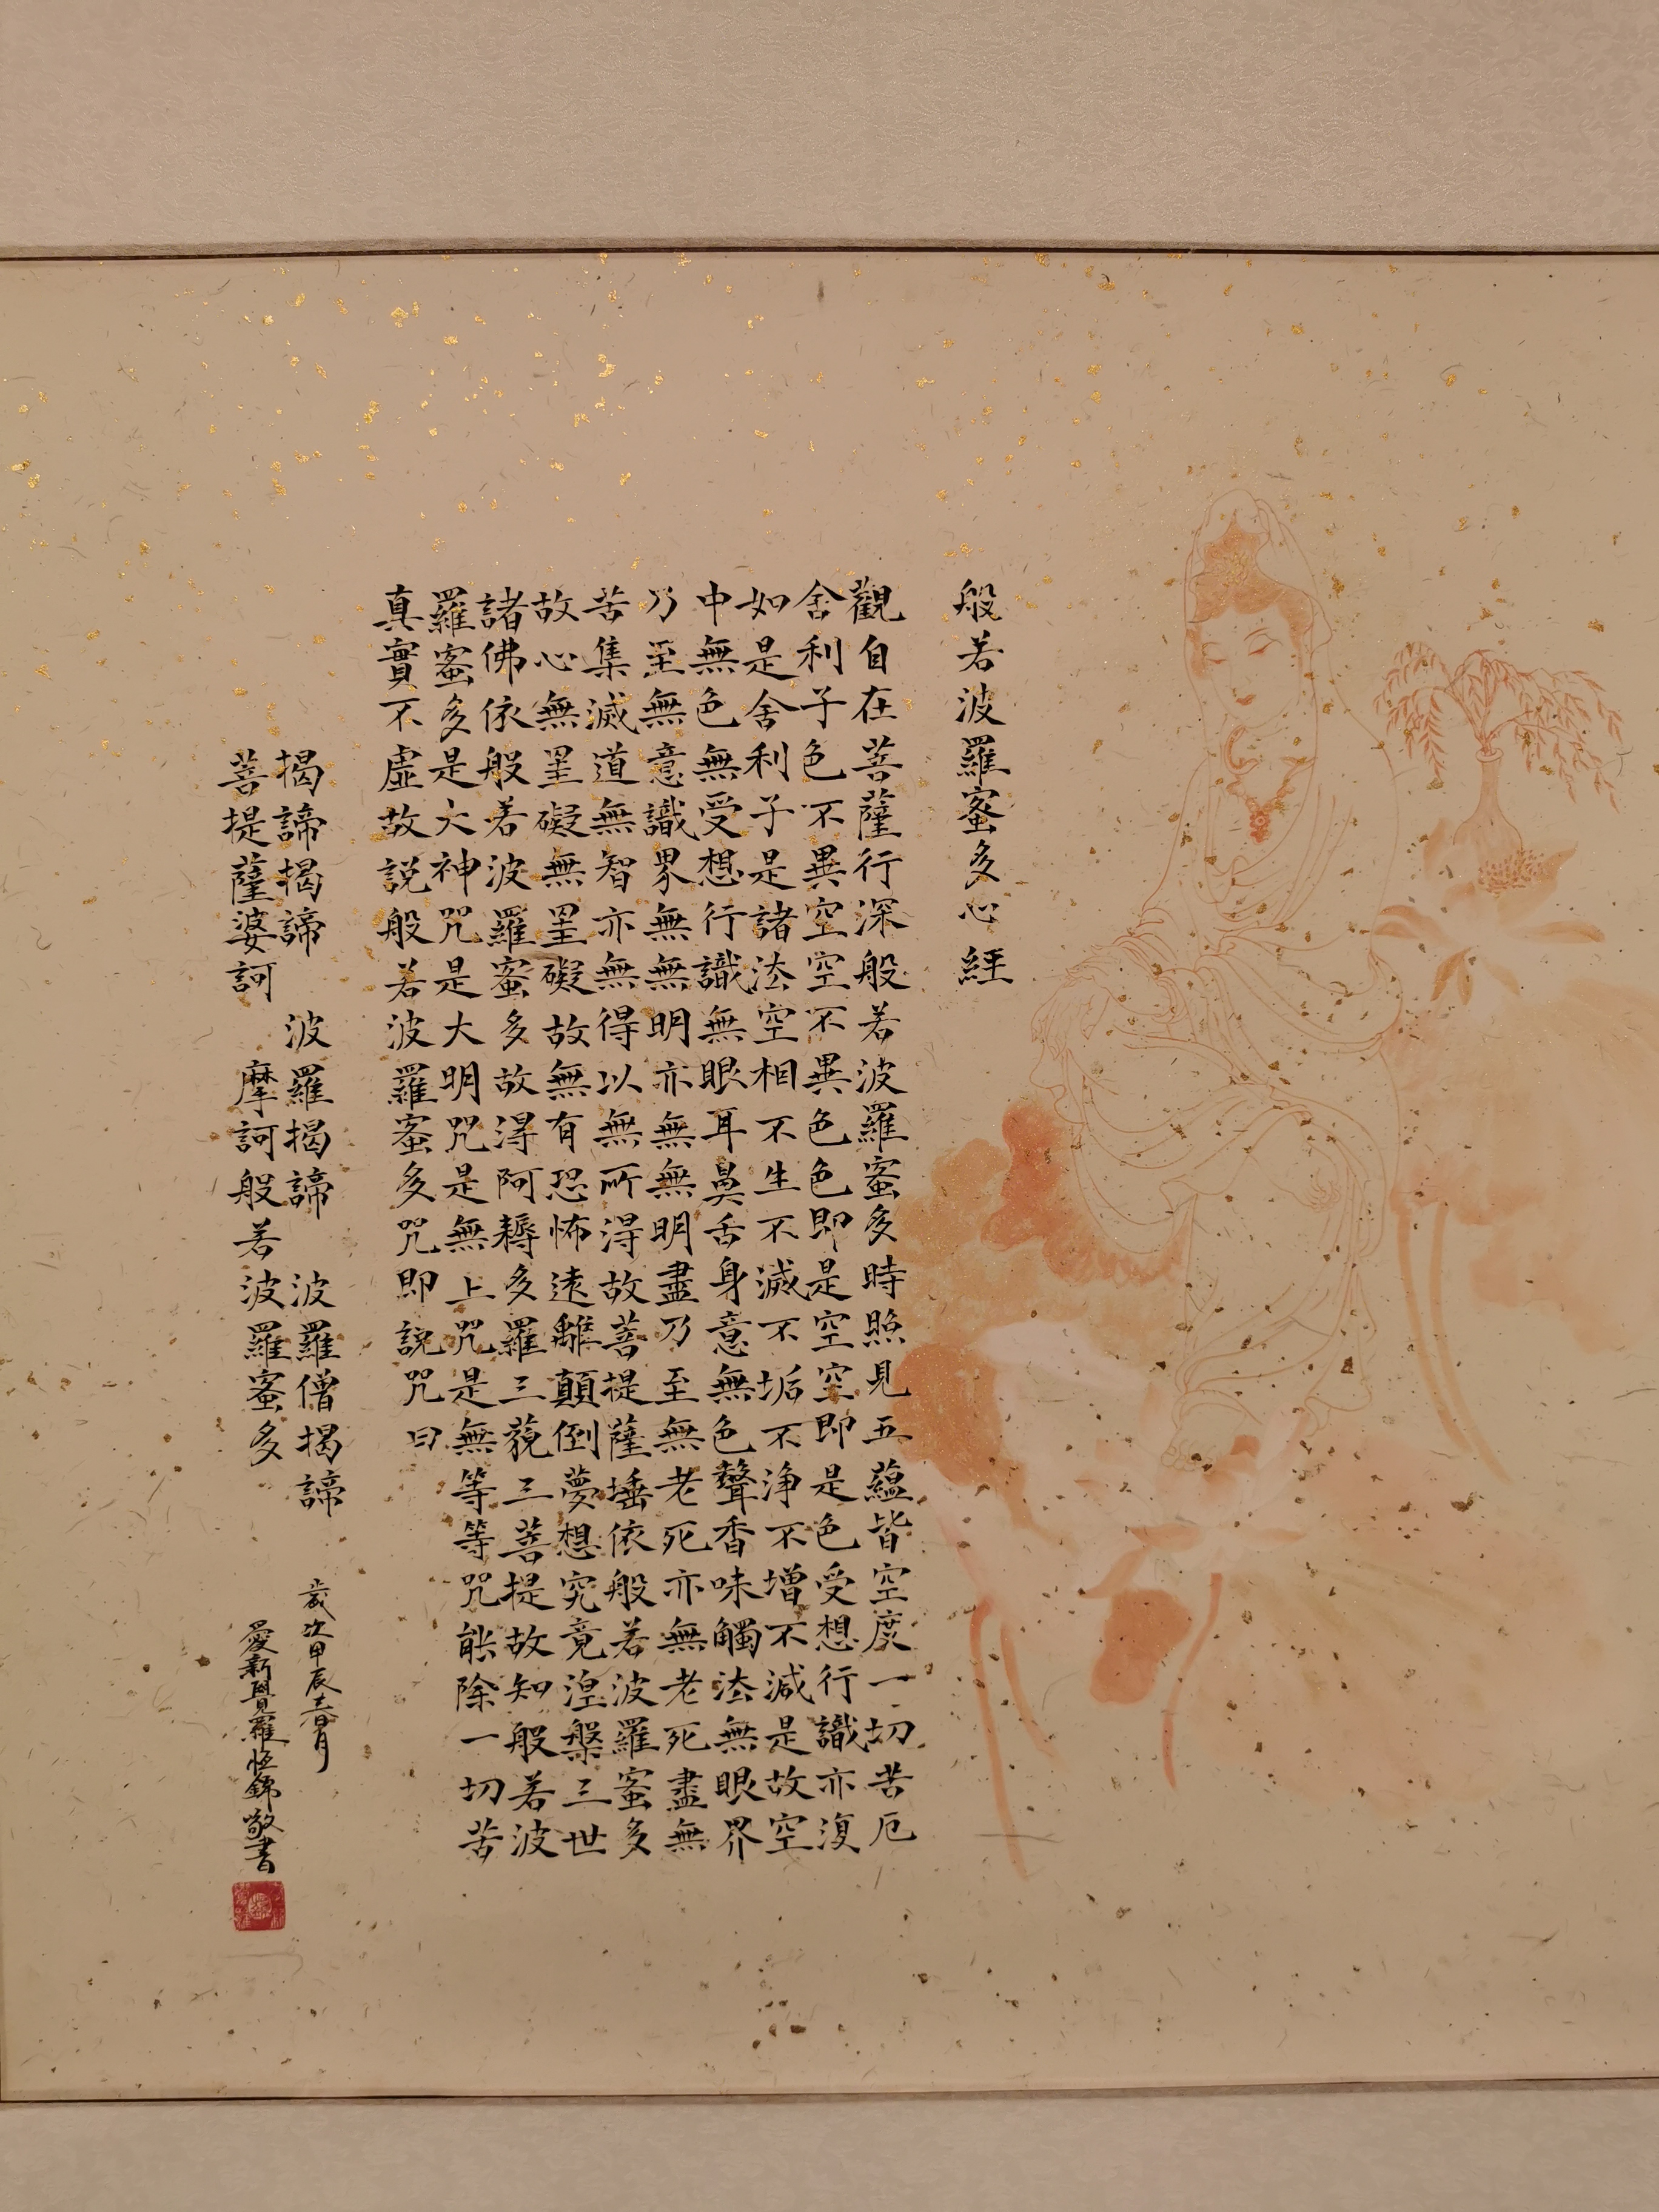 般若波羅蜜多心經
觀自在菩薩行深般若波羅蜜多時照見五蘊皆空度一切苦厄
舍利子色不異空空不異色色即是空空即是色受想行識亦復
如是舍利子是諸法空相不生不滅不垢不淨不增不減是故空
中無色無受想行識無眼耳鼻舌身意無色聲香味觸法無眼界
乃至無意識界無無明亦無無明盡乃至無老死亦無老死盡無
苦集滅道無智亦無得以無所得故菩提薩埵依般若波羅蜜多
故心無罣礙無罣礙故無有恐怖遠離顛倒夢想究竟涅槃三世
諸佛依般若波羅蜜多故得阿耨多羅三藐三菩提故知般若波
羅蜜多是大神咒是大明咒是無上咒是無等等咒能除一切苦
真實不虛故說般若波羅蜜多咒即說咒曰
揭諦揭諦 波羅揭諦 波羅僧揭諦
菩提薩婆訶 摩訶般若波羅蜜多
歲次甲辰春月
愛新覺羅恒錦敬書